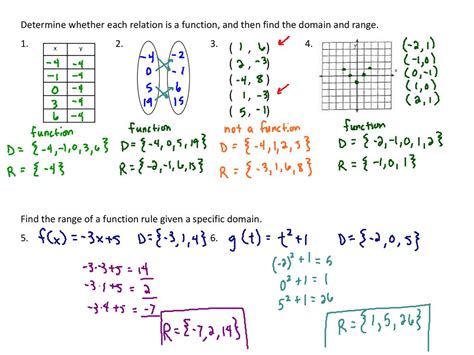 Determine whether each relation is a function, and then find the domain and range.
1. 2. 3. 4.
x y
-4 -4
-1 -4
0 -4
3 -4
6 -4
function
D = {-4,-1,0,3,6}
R = {-4}
-4 -2
0 -1
5 6
19 15
function
D = {-4,0,5,19}
R = {-2,-1,6,15}
(1, 6)
(2, -3)
(-4, 8)
(1, -3)
(5, -1)
not a function
D = {-4,1,2,5}
R = {-3,1,6,8}
(-2, 1)
(-1,0)
(0,-1)
(1,0)
(2,1)
function
D = {-2,-1,0,1,2}
R = {-1,0,1}
Find the range of a function rule given a specific domain.
5. f(x) = -3x+5 D = {-3,1,4} 6. g(t) = t²+1 D = {-2,0,5}
-3·-3+5 = 14
-3·1+5 = 2
-3·4+5 = -7
R = {-7,2,14}
(-2)²+1 = 5
0²+1 = 1
5²+1 = 26
R = {1,5,26}